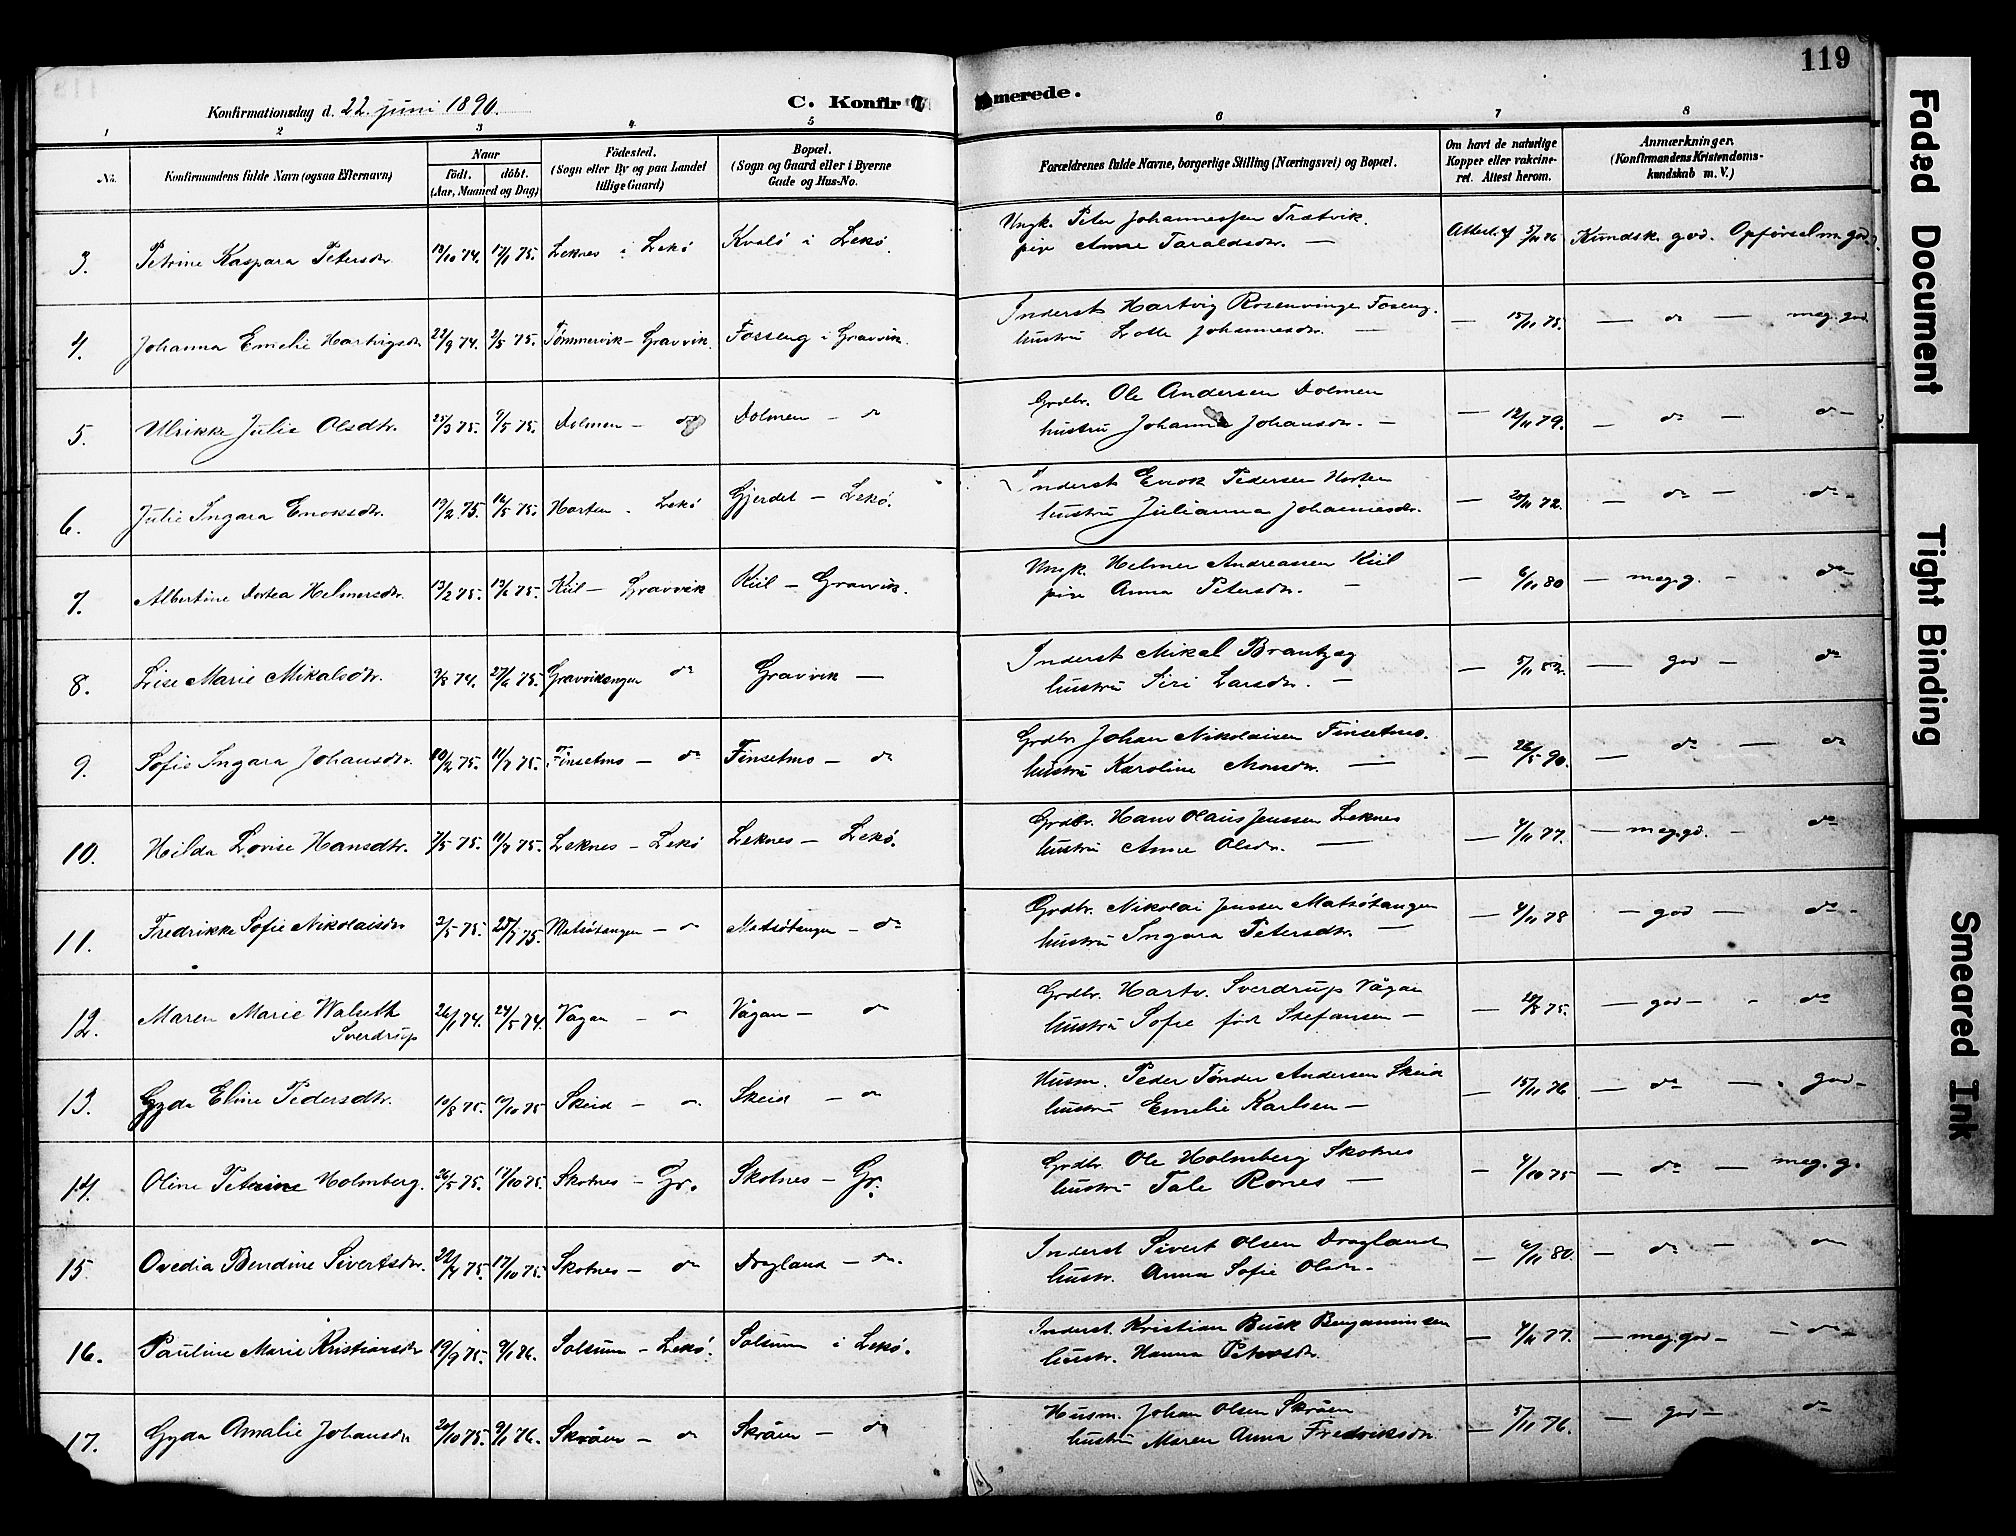 119
Konfirmationsdag d. 22. juni 1890.
C. Konfir merede.
1 2 3 4 5 6 7 8
No. Konfirmandens fulde Navn (ogsaa Efternavn) Naar født. døbt. (Aar, Maaned og Dag) Fødested. (Sogn eller By og paa Landet tillige Gaard) Bopæl. (Sogn og Gaard eller i Byerne Gade og Hus-No. Forældrenes fulde Navne, borgerlige Stilling (Næringsvei) og Bopæl. Om havt de naturlige Kopper eller vakcineret. Attest herom. Anmærkninger. (Konfirmandens Kristendomskundskab m. V.)
3. Petrine Kaspara Petersdtr. 19/10 74. 17/1 75. Leknes i Lekø Kvalø i Lekø Ungk. Peter Johannessen Trætvik.
pige Anne Taraldsdtr. — Kundsk. god. Opførsel m. god.
4. Johanna Emelie Hartvigsdtr 22/9 74. 2/5 75. Tømmervik - Gravvik. Fosseng i Gravvik. Inderst Hartvig Rosenvinge Foseng.
hustru Lotte Johannesdtr. — — 15/11 75. — do — meg. god
5. Ulrikke Julie Olsdtr. 25/3 75. 9/5 75. Dolmen - do Dolmen - do Grdbr. Ole Andersen Dolmen
hustru Johanna Johansdtr. — — 12/11 79. — do — do —
6. Julie Ingara Enoksdtr. 19/2 75. 16/5 75. Horten - Lekø Gjerdet - Lekø. Inderst Enok Pedersen Horten
hustru Julianna Johannesdtr. — 20/11 72. — do — do -
7. Albertine Dortea Helmersdtr. 13/2 75. 13/6 75. Kiil - Gravvik Kiil - Gravvik. Ungk. Helmer Andreassen Kiil
pige Anna Petersdtr. — — 6/11 80 — meg. g. - do -
8. Lise Marie Mikalsdtr. 9/8 74. 27/6 75. Gravvikengen do Gravvik — Inderst Mikal Brantzæg
hustru Siri Larsdtr. — — 5/11 82. — god — do
9. Sofie Ingara Johansdtr. 20/2 75. 11/7 75. Finsetmo - do Finsetmo - do Grdbr. Johan Nikolaisen Finsetmo.
hustru Karoline Monsdtr. — — 26/5 90. — do — do
10. Hilda Lovise Hansdtr. 7/5 75. 11/7 75. Leknes - Lekø Leknes - Lekø. Grdbr. Hans Olaus Jenssen Leknes
hustru Anne Olsdtr. — — 4/11 77. — meg. gd. - do
11. Fredrikke Sofie Nikolaisdtr 2/5 75. 25/7 75. Matsøtangen - do Matsøtangen - do Grdbr. Nikolai Jenssen Matsøtangen
hustru Ingara Petersdtr. — — 4/11 78 — god — do -
12. Maren Marie Walseth
Sverdrup 26/1 74. 24/5 74. Vågan - do Vågan - do Grdbr. Hartv. Sverdrup Vågan
hustru Sofie født Stefansen — — god — do
13. Gyda Eline Pedersdtr. 19/8 75. 17/10 75 Skeid - do Skeid - do Husm. Peder Tønder Andersen Skeid
hustru Emelie Karlsen — — 15/11 76 — do — god -
14. Oline Peterine Holmberg. 26/5 75. 17/10 75. Skotnes - Gr. Skotnes - Gr. Grdbr. Ole Holmberg Skotnes
hustru Tale Rones — — 4/10 75 — do — meg. g.
15. Ovedia Bendine Sivertsdtr. 22/7 75. 17/10 75. Skotnes - do Dragland - do. Inderst Sivert Olsen Dragland
hustr. Anna Sofie Olsdtr. — 6/11 80. — do — do
16. Pauline Marie Kristiansdtr 19/9 75. 9/1 76. Solsum - Lekø. Solsum i Lekø. Inderst. Kristian Busk Benjaminsen
hustr. Hanna Petersdtr. — 4/11 77. — meg. god - do
17. Gyda Amalie Johansdtr 20/10 75. 9/1 76. Skråen - do Skråen - do Husm. Johan Olsen Skråen
hustru Maren Anna Fredriksdtr. — 5/11 76. — god — do
Faded Document
Tight Binding
Smeared Ink